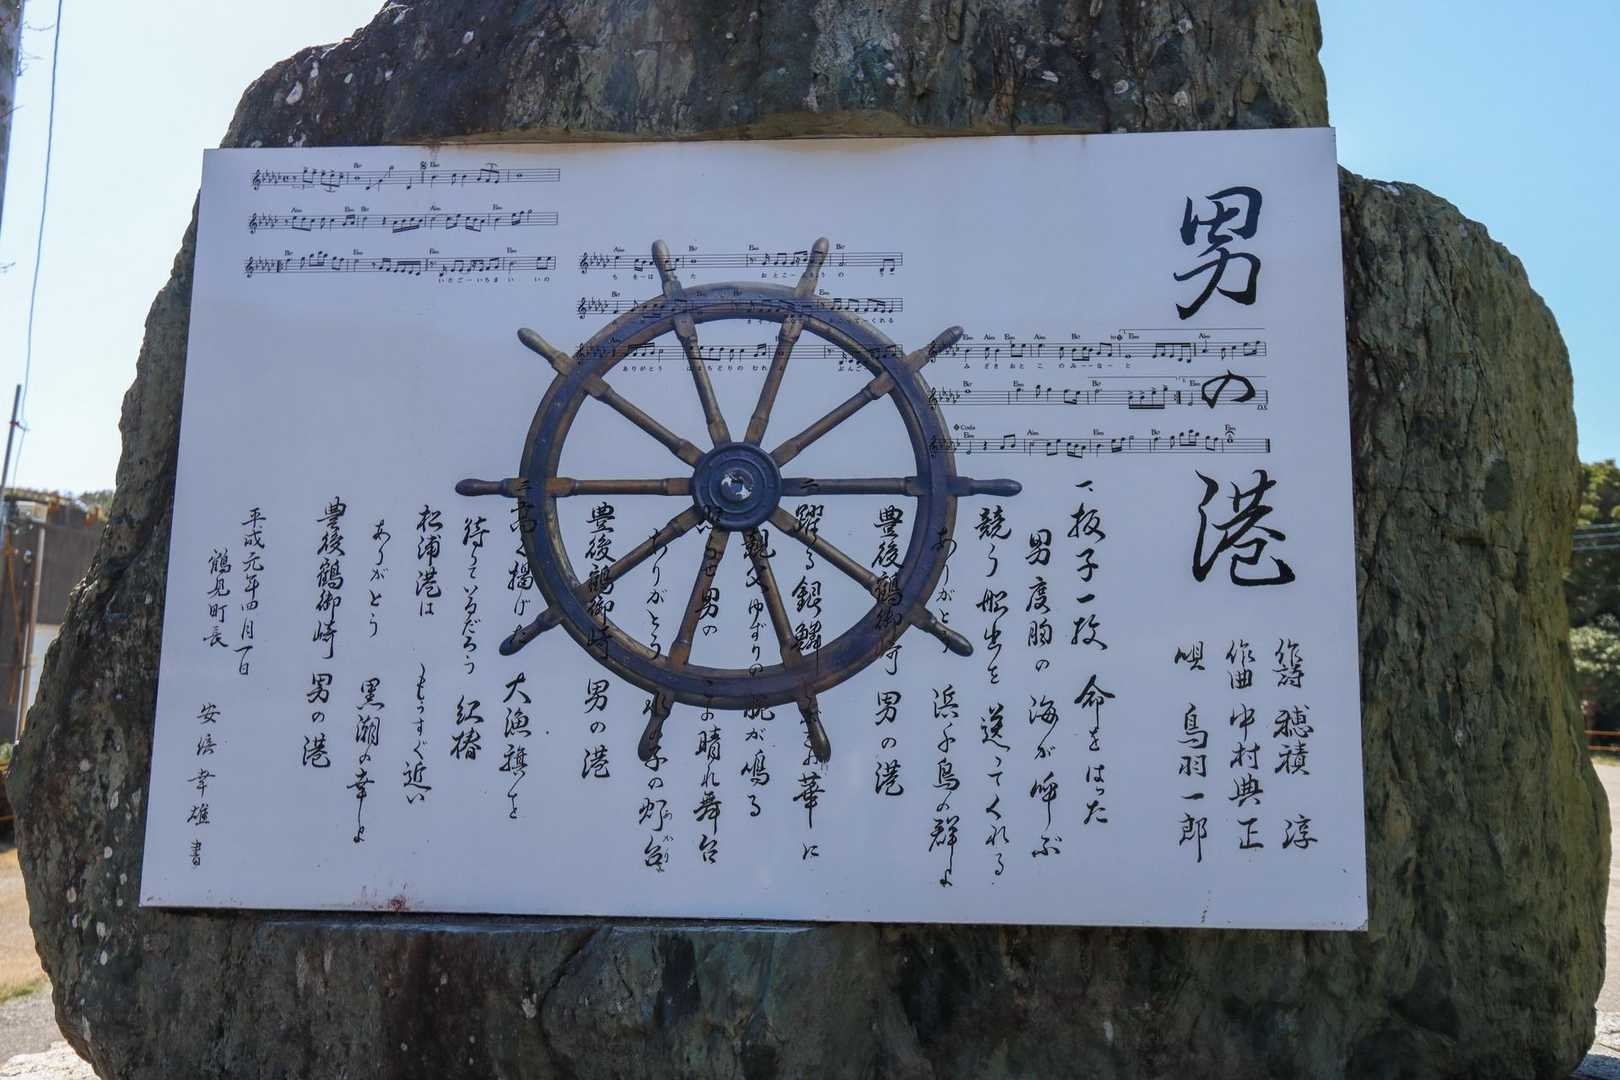 男の港
作詩 穂積 淳
作曲 中村典正
唄 鳥羽一郎
一、板子一枚 命をはった
男度胸の 海が呼ぶ
競う船出を 送ってくれる
ありがとう 浜千鳥の群よ
豊後鶴御崎 男の港
二、躍る銀鱗 華に
親父ゆずりの 腕が鳴る
男の 晴れ舞台
ありがとう の灯台
豊後鶴御崎 男の港
三、高く揚げた 大漁旗を
待っているだろう 紅椿
松浦港は もうすぐ近い
ありがとう 黒潮の幸よ
豊後鶴御崎 男の港
平成元年四月一日
鶴見町長 安倍幸雄 書